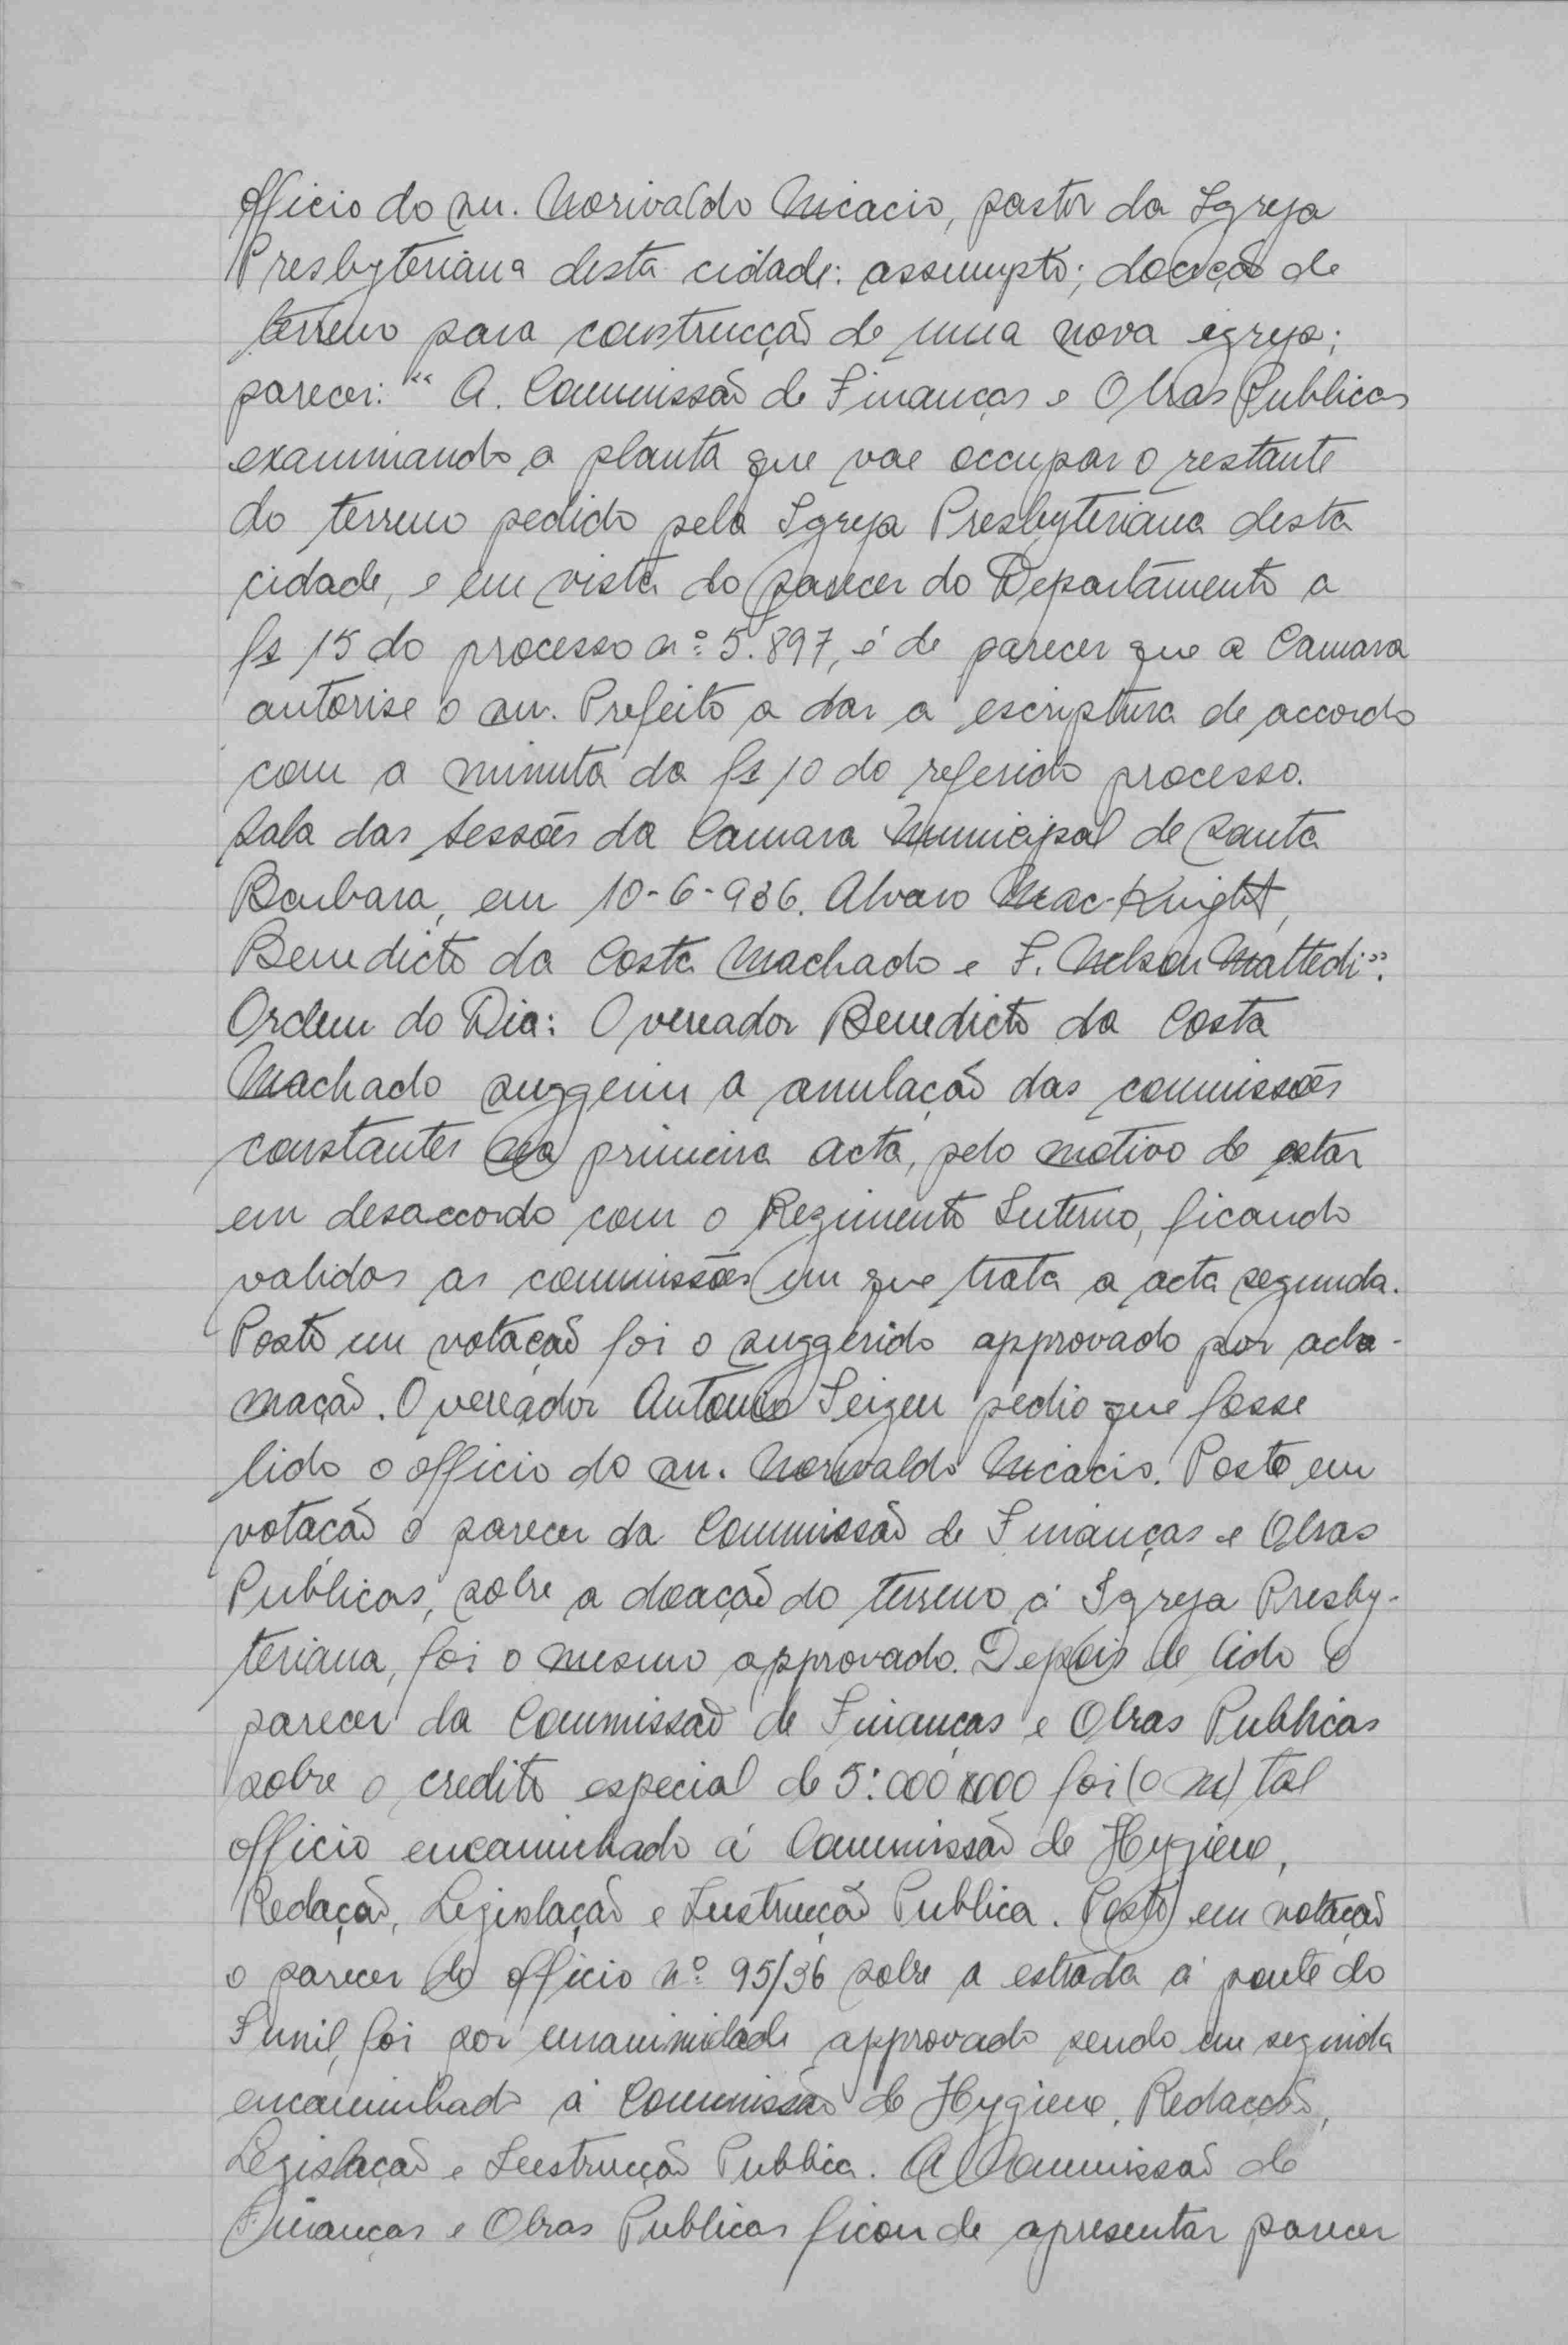 officio do snr. Norivaldo Nicacio, pastor da Igreja
Presbyteriana desta cidade: assumpto; doação de
terreno para construcção de uma nova egreja;
parecer: “ A. Commissão de Finanças e Obras Publicas
examinando a planta que vae occupar o restante
do terreno pedido pela Igreja Presbyteriana desta
cidade, e em vista do parecer do Departamento a
fs 15 do processo nº 5.897, é de parecer que a Camara
autorise o snr. Prefeito a dar a escriptura de accordo
com a minuta da fs 10 do referido processo.
Sala das Sessões da Camara Municipal de Santa
Barbara, em 10-6-936. Alvaro Mac-Knight,
Benedicto da Costa Machado e F. Nelson Mattedi”.
Ordem do Dia: O vereador Benedicto da Costa
Machado suggeriu a anulação das commissões
constantes na primeira acta, pelo motivo de estar
em desaccordo com o Regimento Interno, ficando
validas as commissões em que trata a acta segunda.
Posto em votação foi o suggerido approvado por acla-
mação. O vereador Antonio Seigen pedio que fosse
lido o officio do snr. Norivaldo Nicacio. Posto em
votação o parecer da Commissão de Finanças e Obras
Publicas, sobre a doação do terreno á Igreja Presby-
teriana, foi o mesmo approvado. Depois de lido o
parecer da Commissão de Finanças e Obras Publicas
sobre o credito especial de 5:000$000 foi (o m) tal
officio encaminhado á Commissão de Hygiene,
Redação, Legislação e Instrucção Publica. Posto em votação
o parecer do officio nº 95/36 sobre a estrada á ponte do
Funil, foi por unanimidade approvado sendo em seguida
encaminhado á Commissão de Hygiene, Redacção,
Legislação e Instrucção Publica. A Commissão de
Finanças e Obras Publicas ficou de apresentar parecer